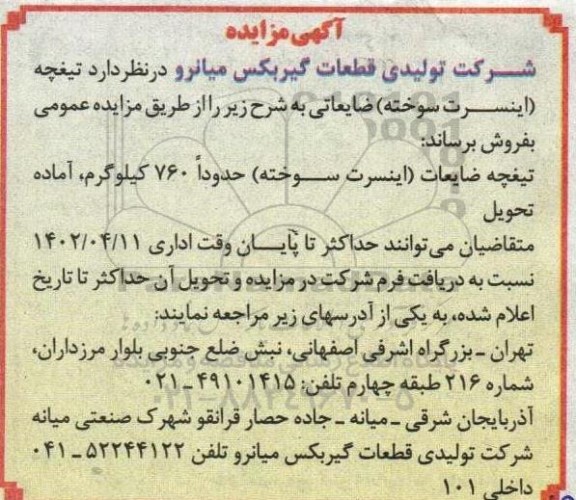 آگهی مزایده
شرکت تولیدی قطعات گیربکس میانرو درنظر دارد تیغچه
(اینسرت سوخته) ضایعاتی به شرح زیر را از طریق مزایده عمومی
بفروش برساند:
تیغچه ضایعات (اینسرت سوخته) حدوداً ۷۶۰ کیلوگرم، آماده
تحویل
متقاضیان می‌توانند حداکثر تا پایان وقت اداری ۱۴۰۲/۰۴/۱۱
نسبت به دریافت فرم شرکت در مزایده و تحویل آن حداکثر تا تاریخ
اعلام شده، به یکی از آدرسهای زیر مراجعه نمایند:
تهران - بزرگراه اشرفی اصفهانی، نبش ضلع جنوبی بلوار مرزداران،
شماره ۲۱۶ طبقه چهارم تلفن: ۴۹۱۰۱۴۱۵ - ۰۲۱
آذربایجان شرقی - میانه - جاده حصار قرانقو شهرک صنعتی میانه
شرکت تولیدی قطعات گیربکس میانرو تلفن ۵۲۲۴۴۱۲۲ - ۰۴۱
داخلی ۱۰۱